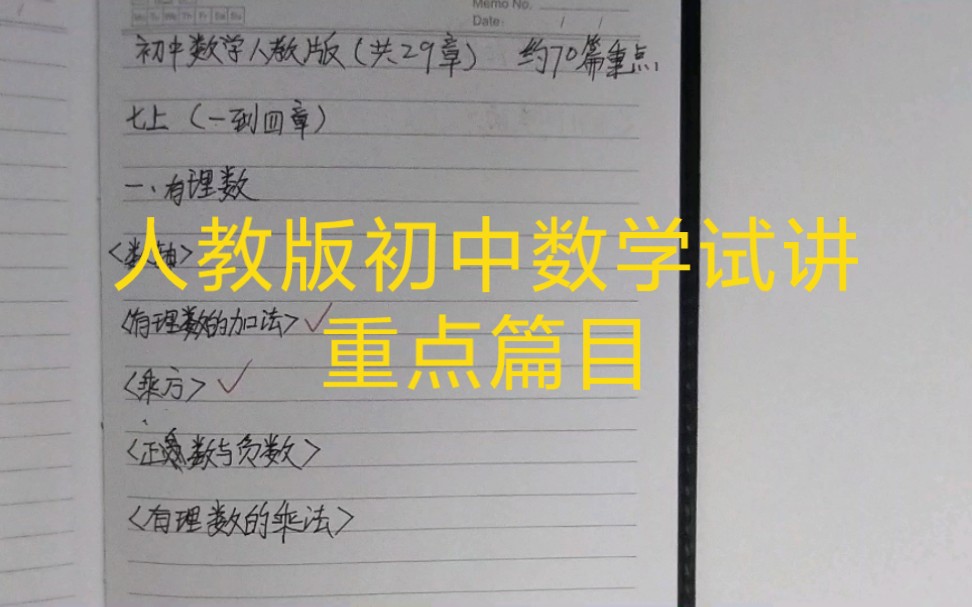 Memo No.
Mo Tu We Th Fr Sa Su
Date: / /
初中数学人教版(共29章) 约70篇重点
七上(一到四章)
一、有理数
<数轴>
人教版初中数学试讲
<有理数的加法>✓
重点篇目
<乘方>✓
<正数与负数>
<有理数的乘法>